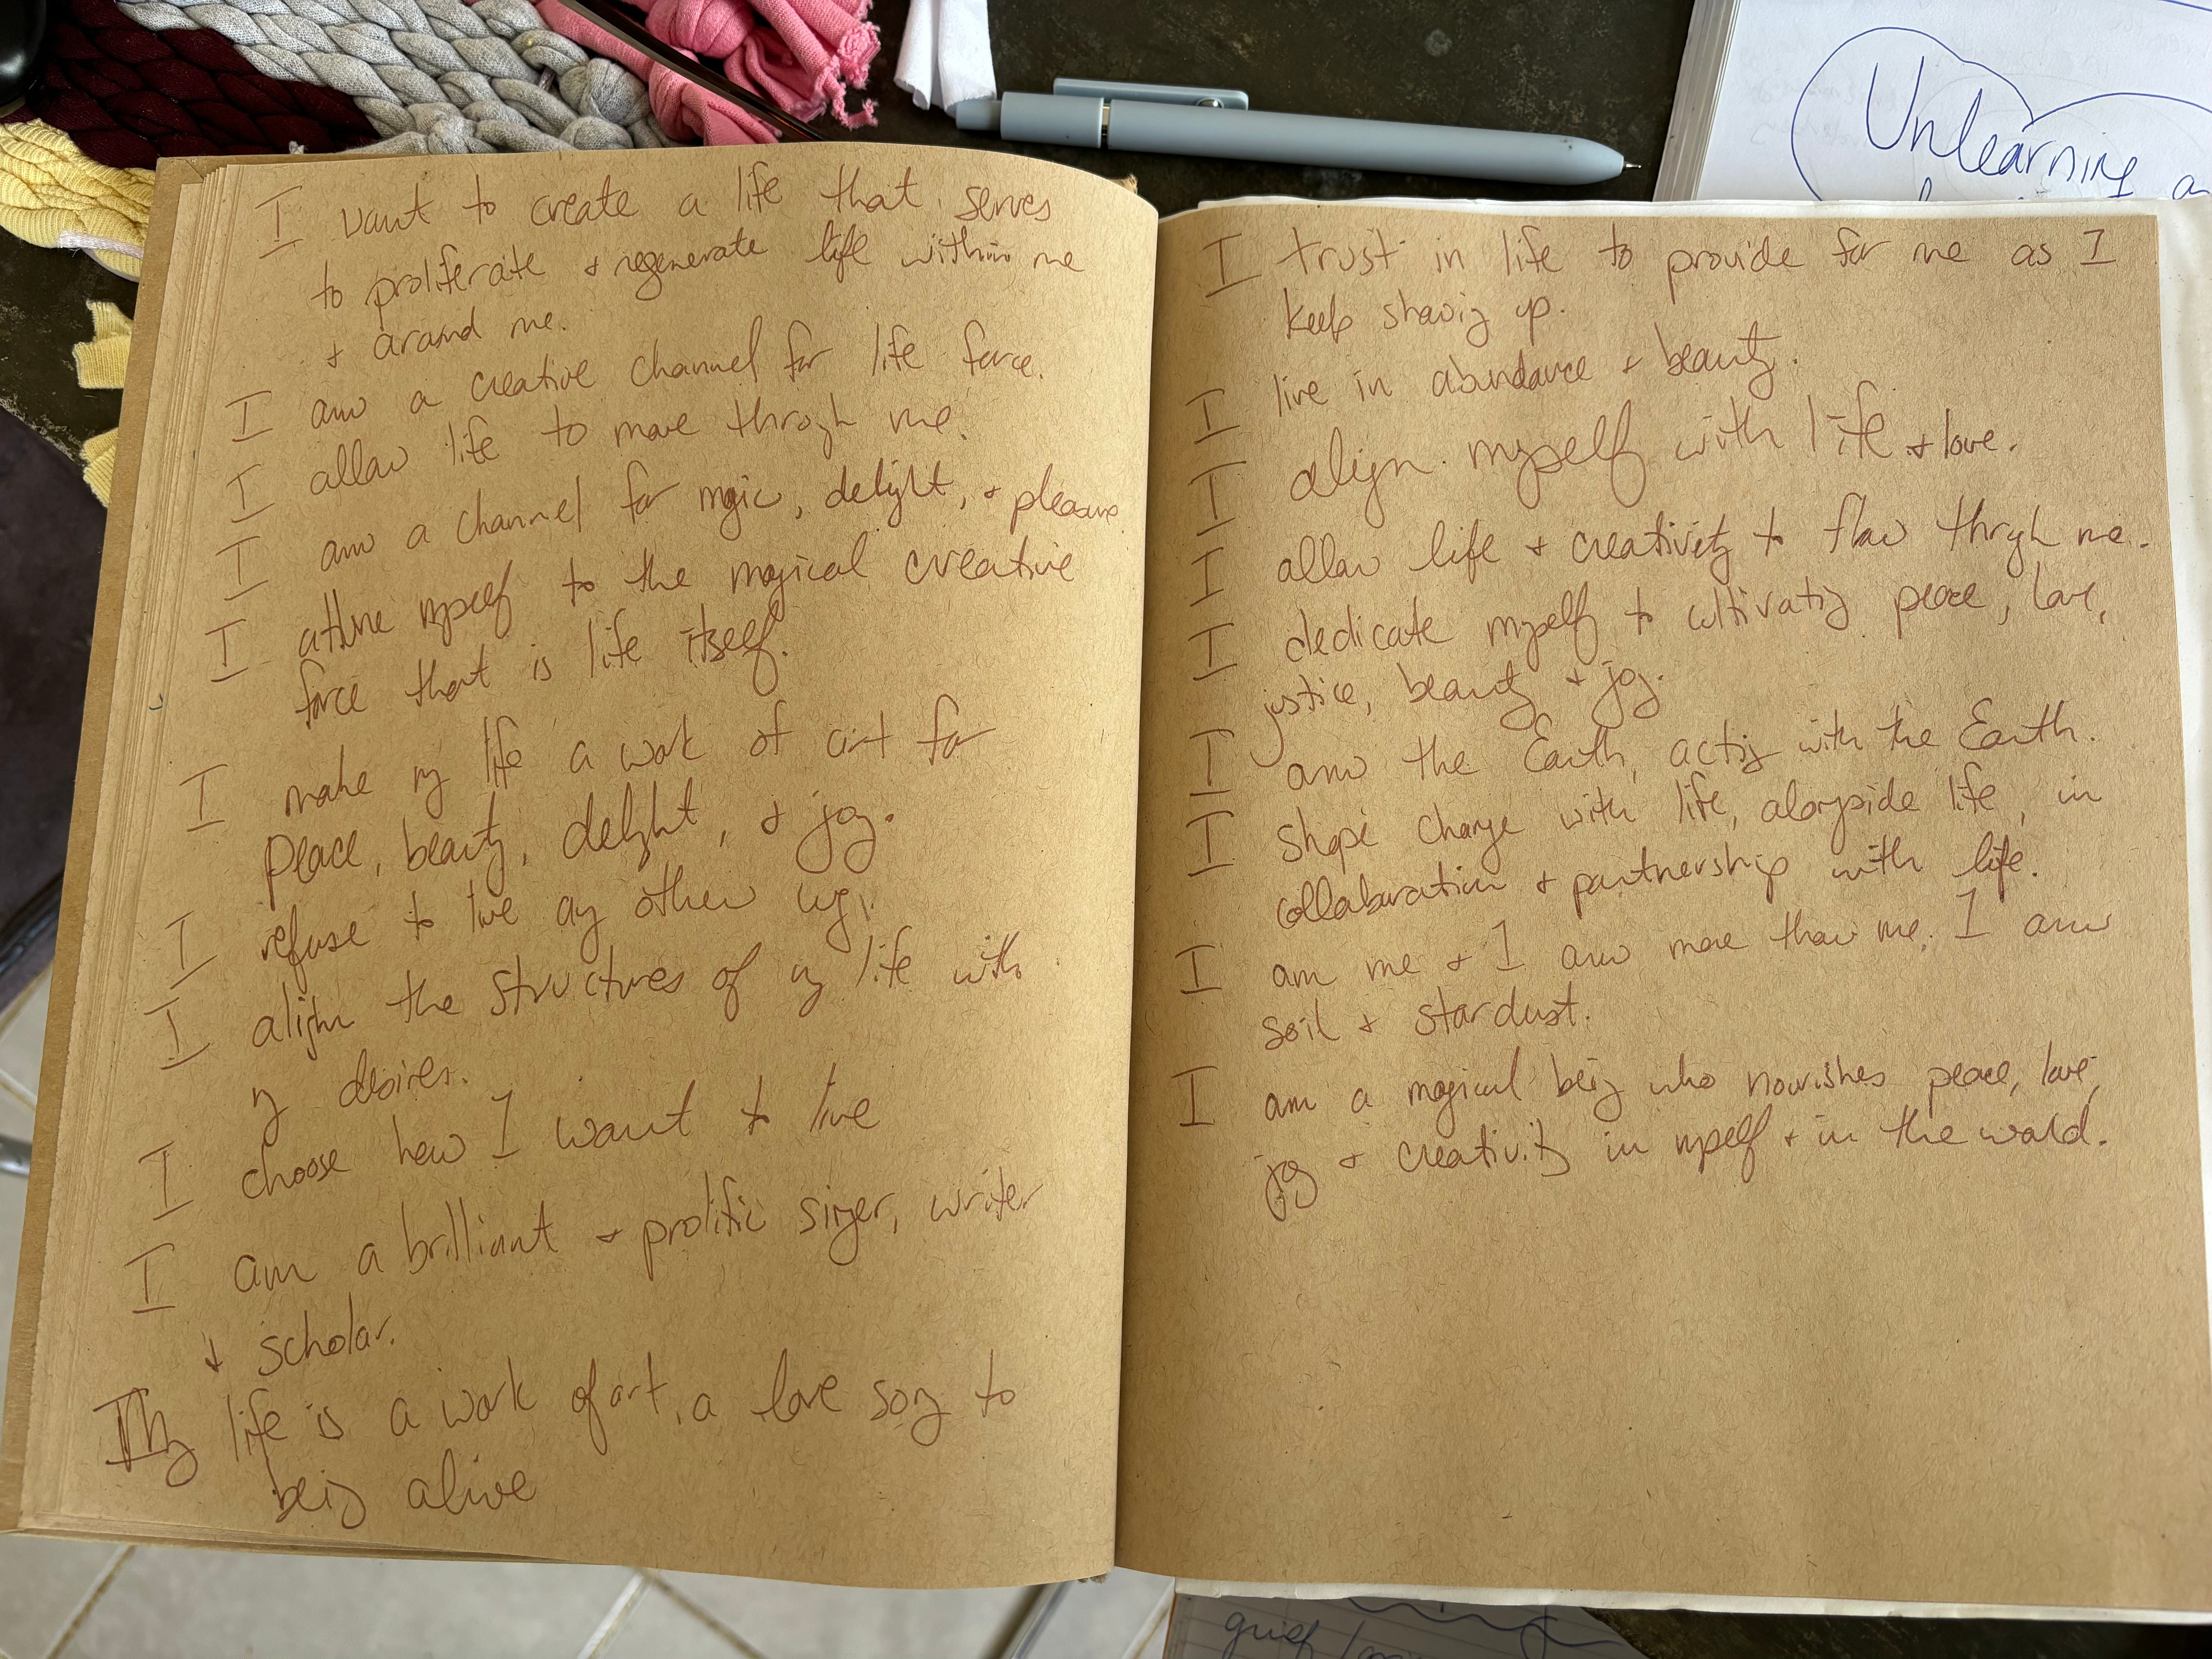 I want to create a life that serves
to proliferate + regenerate life within me
+ around me.
I am a creative channel for life force.
I allow life to move through me.
I am a channel for mgic, delight, + pleasure
I attune myself to the magical creative
force that is life itself.
I make my life a work of art for
peace, beauty, delight, + joy.
I refuse to live any other way.
I align the structures of my life with
my desires.
I choose how I want to live
I am a brilliant + prolific singer, writer
+ scholar.
My life is a work of art, a love song to
being alive
I trust in life to provide for me as I
keep showing up.
I live in abundance + beauty.
I align myself with life + love.
I allow life + creativity to flow through me.
I dedicate myself to cultivating peace, love,
justice, beauty + joy.
I am the Earth, acting with the Earth.
I shape change with life, alongside life, in
collaboration + partnership with life.
I am me + I am more than me. I am
soil + stardust.
I am a magical being who nourishes peace, love,
joy + creativity in myself + in the world.
Unlearning a
grief